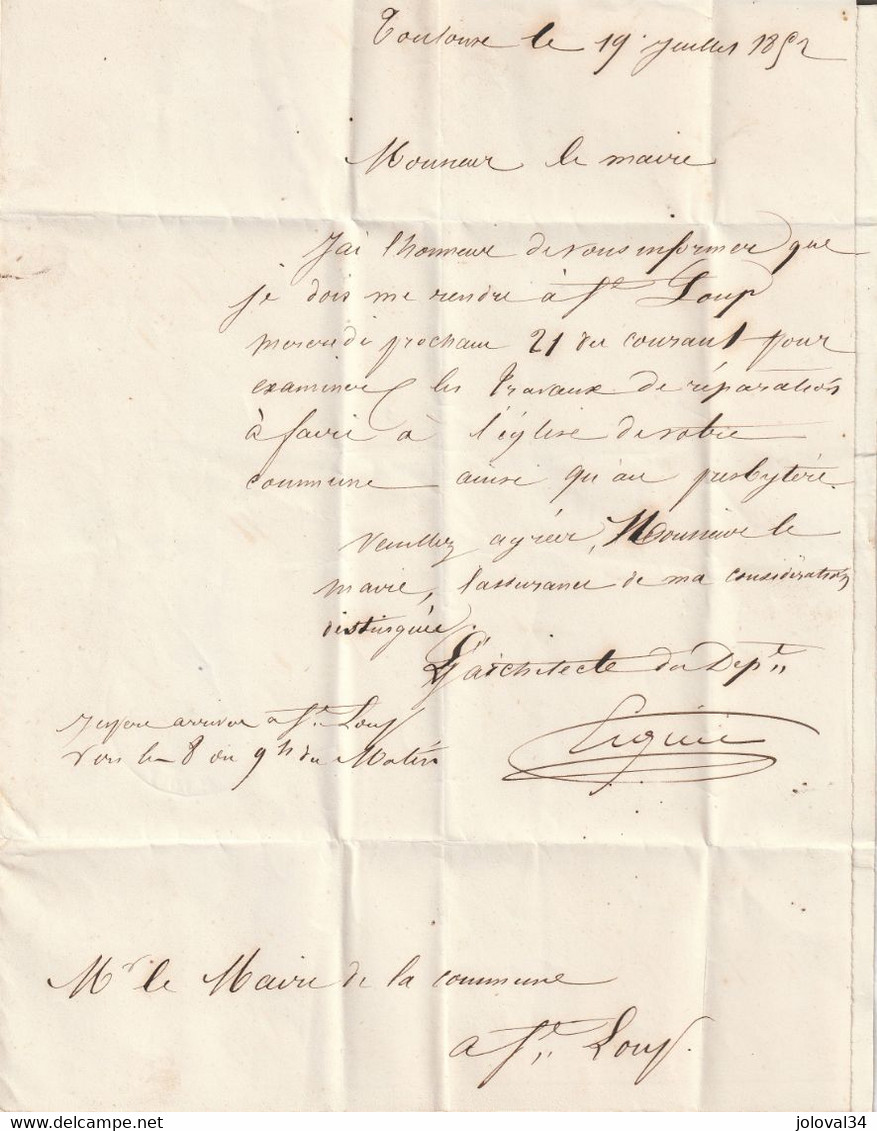 Toulouse le 19 juillet 1852
Monsieur le maire
J'ai l'honneur de vous informer que
je dois me rendre à St Loup
mercredi prochain 21 du courant pour
examiner les travaux de réparations
à faire à l'église de votre
commune ainsi qu'au presbytère.
Veuillez agréer, Monsieur le
maire, l'assurance de ma considération
distinguée.
L'architecte du Dept
J'espère arriver à St Loup
vers les 8 ou 9h du Matin
Mr le Maire de la commune
a St Loup.
delcampe.net
joloval34